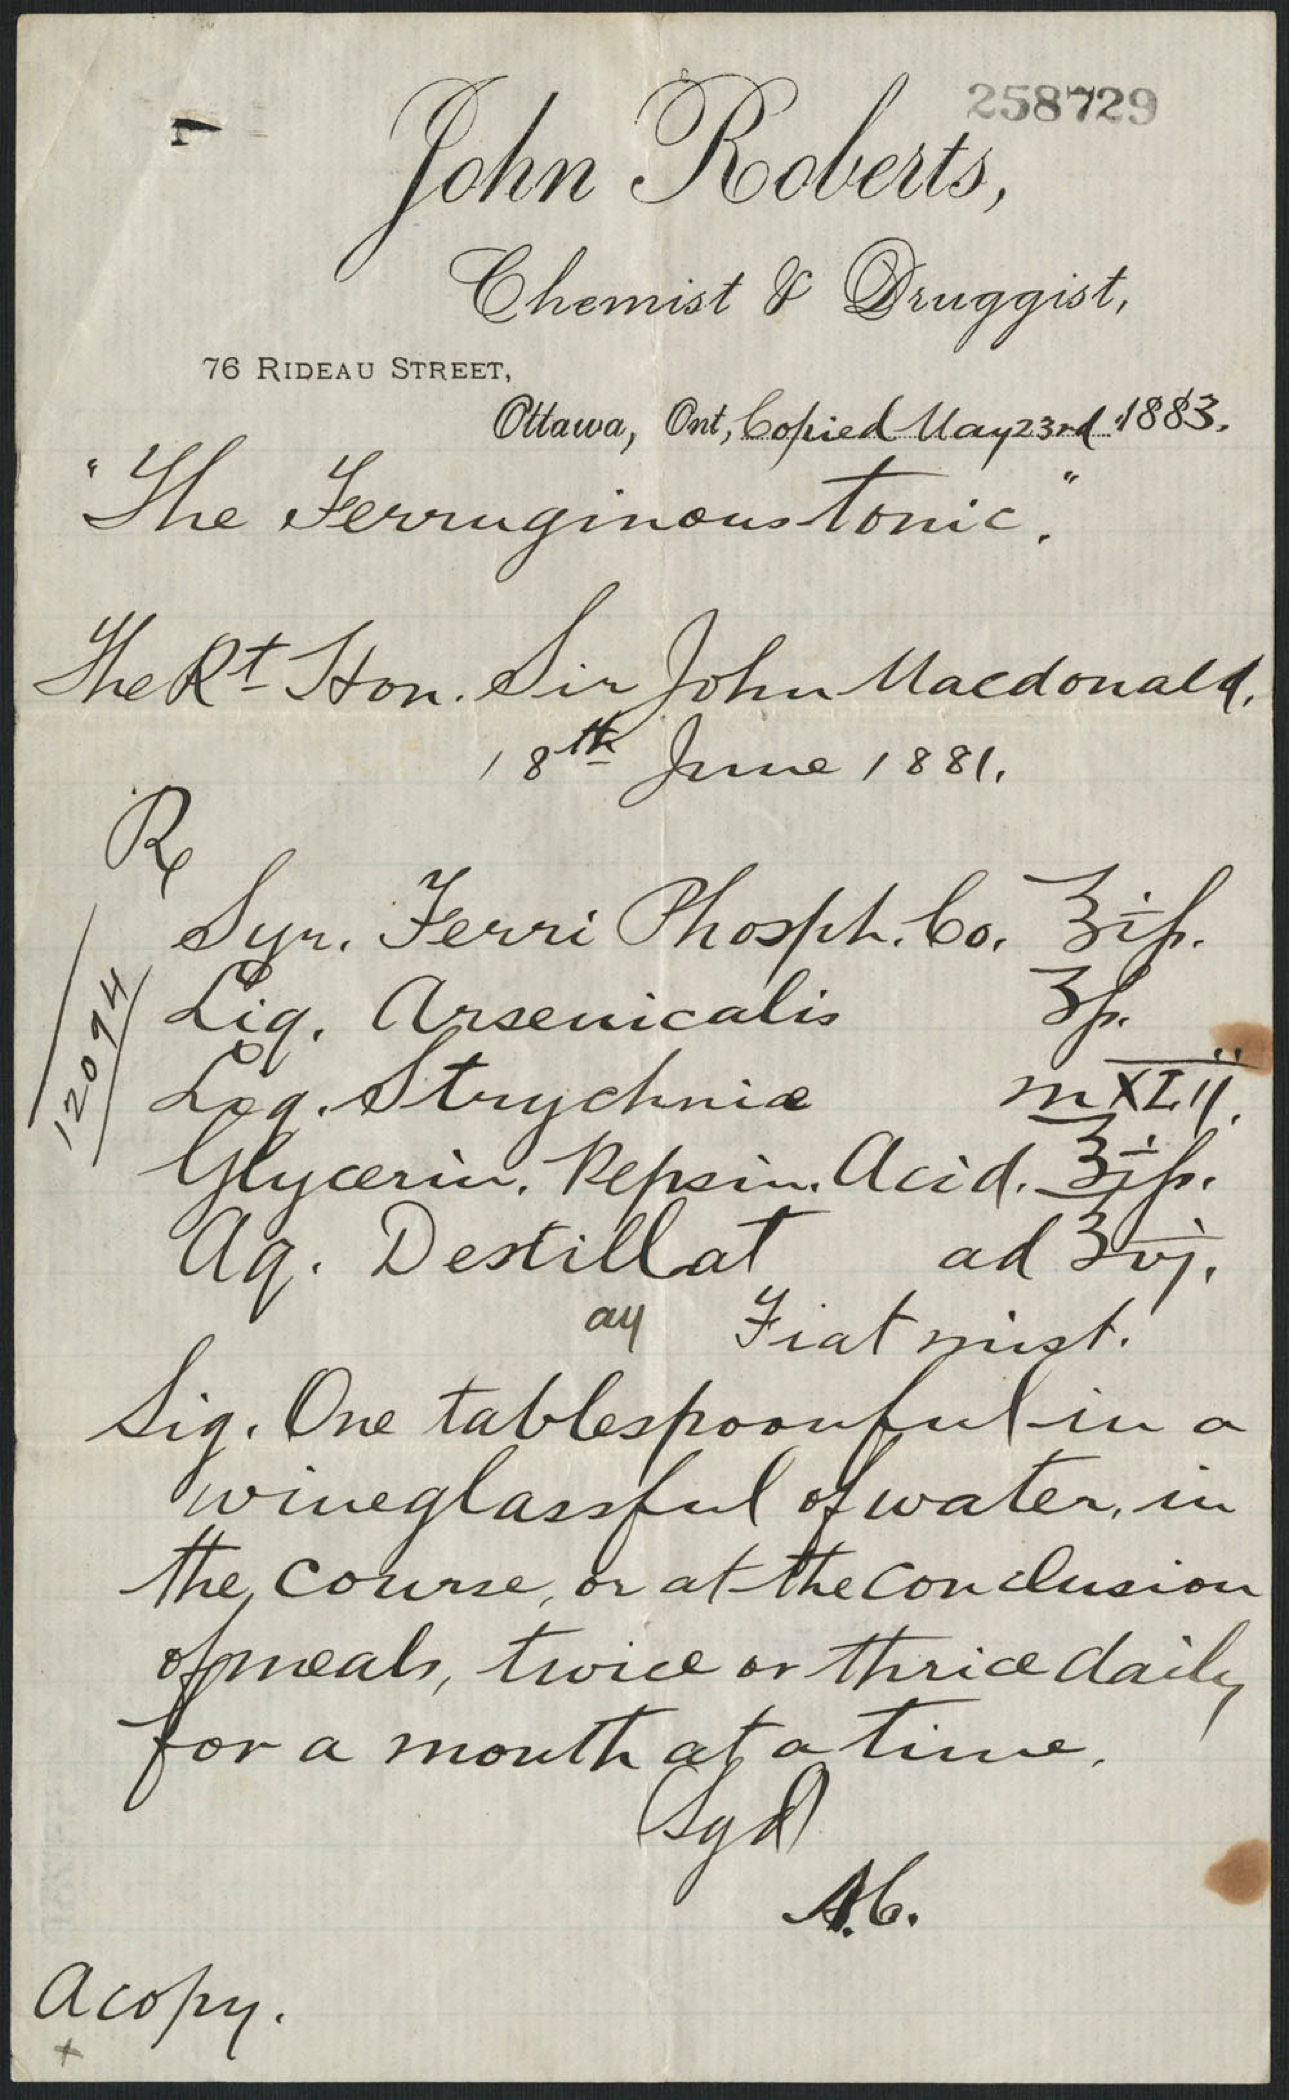 258729
John Roberts,
Chemist & Druggist,
76 RIDEAU STREET,
Ottawa, Ont, Copied May 23rd 1883.
"The Ferruginous Tonic."
The Rt Hon. Sir John Macdonald.
18th June 1881.
℞
12094
Syr. Ferri Phosph. Co. ℥iß.
Liq. Arsenicalis ʒß.
Liq. Strychniæ m XLij.
Glycerin. Pepsin. Acid. ℥iß.
Aq. Destillat ad ℥vj.
Fiat mist.
Sig. One tablespoonful in a
wineglassful of water, in
the course, or at the conclusion
of meals, twice or thrice daily
for a month at a time.
(Sgd)
A.C.
A copy.